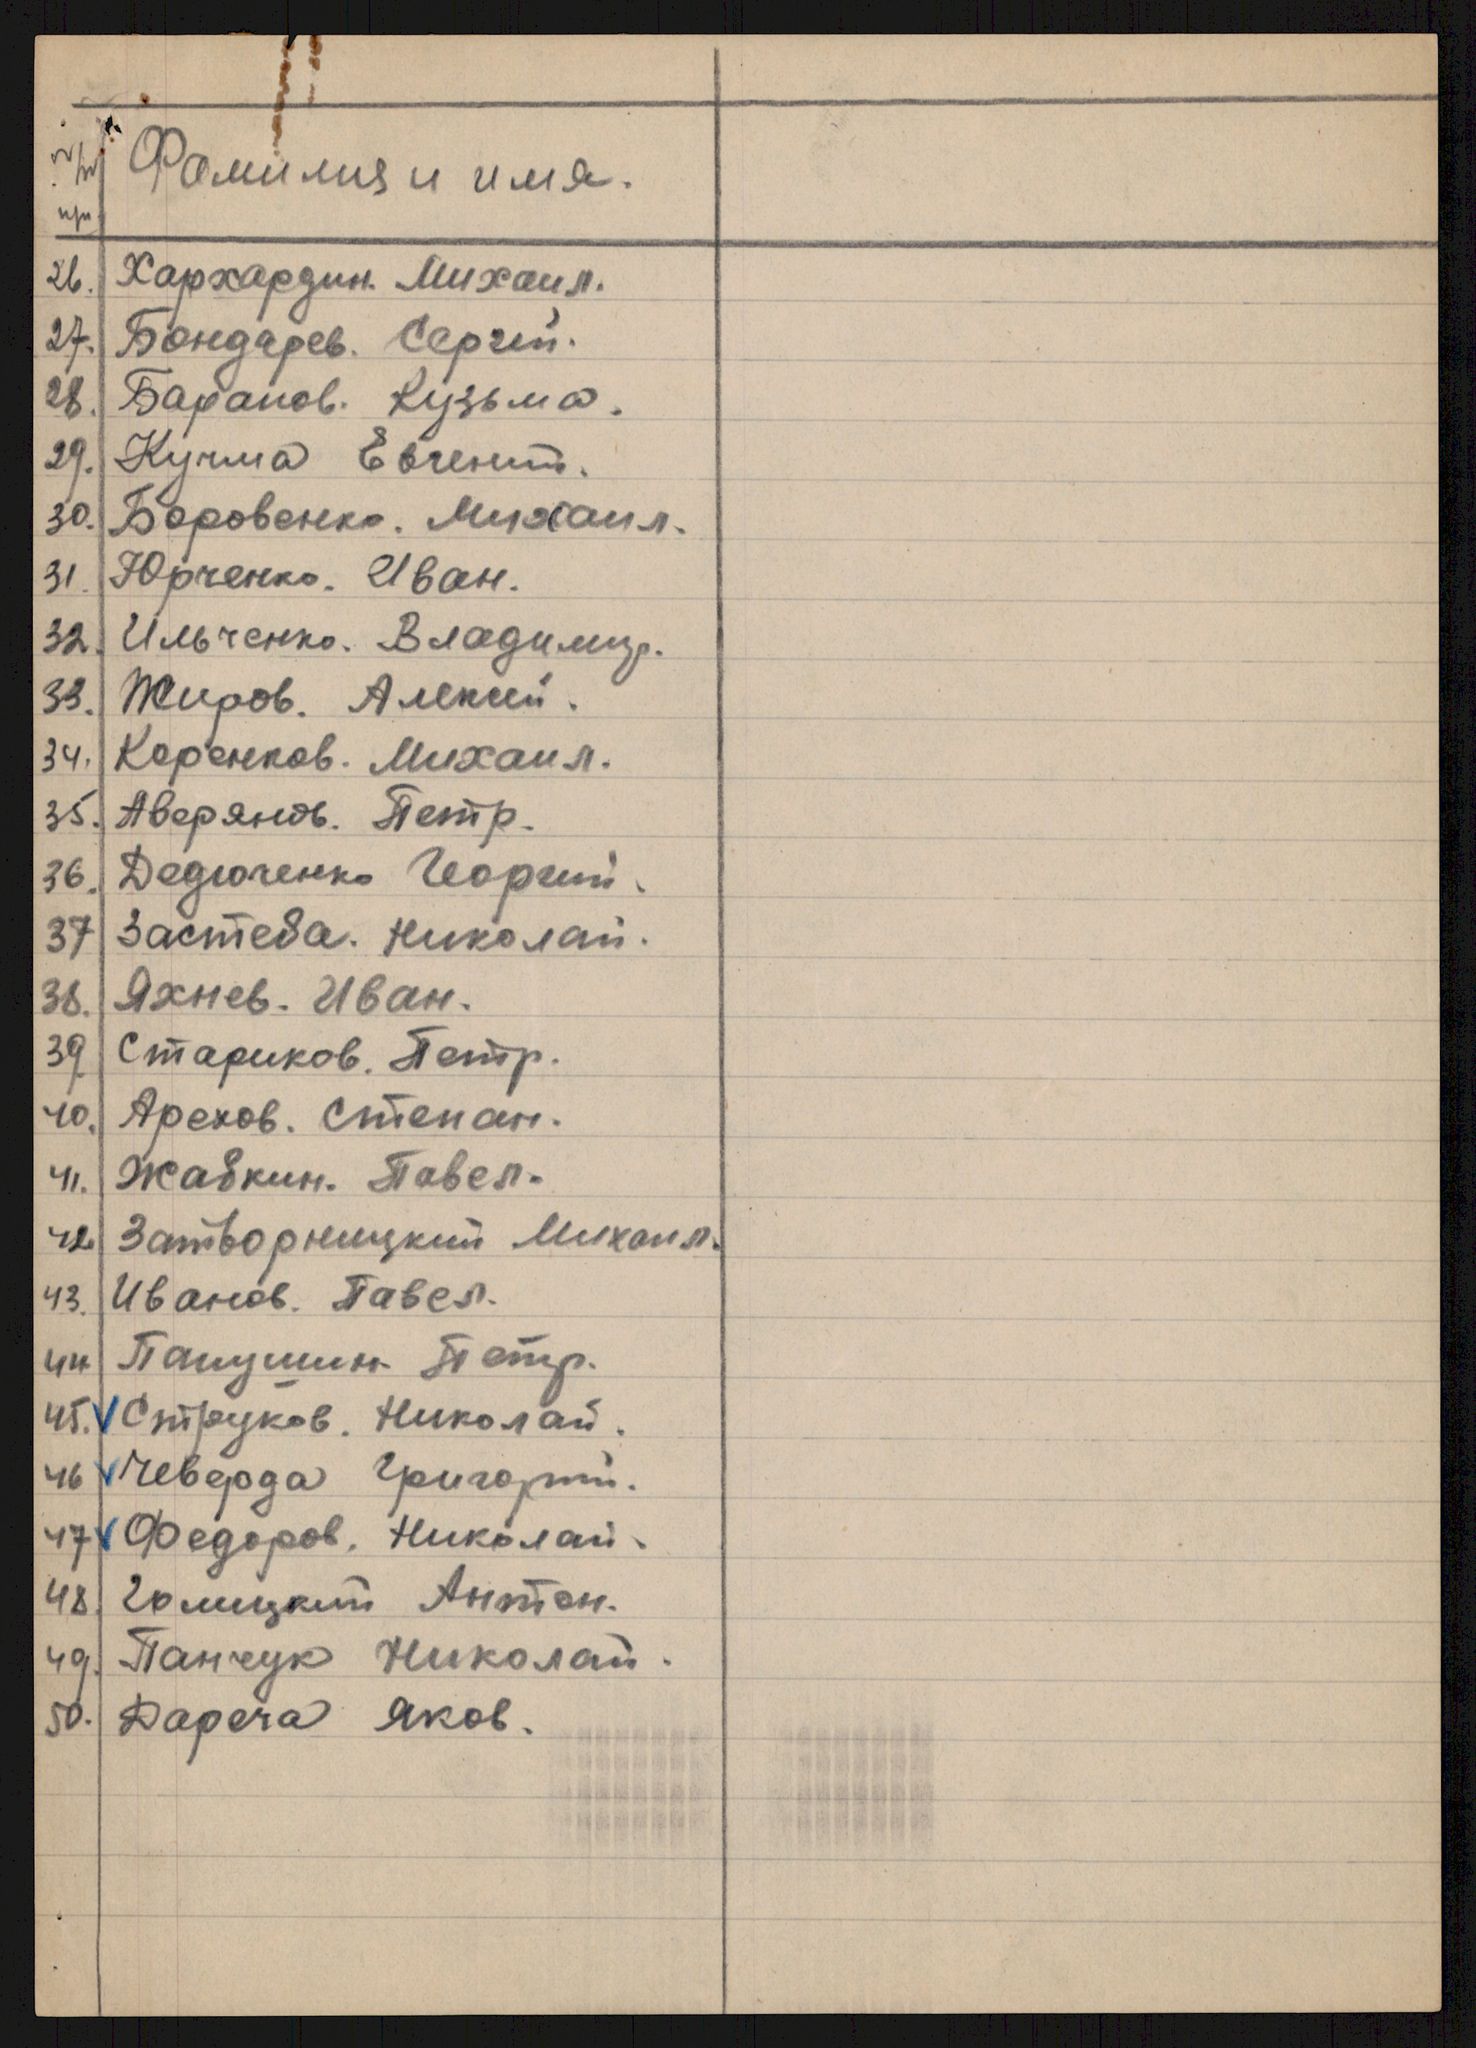 №№ п/п Фамилия и имя.
26. Хархардин. Михаил.
27. Бондарев. Сергей.
28. Баранов. Кузьма.
29. Кучма Евгений.
30. Боровенко. Михаил.
31. Юрченко. Иван.
32. Ильченко. Владимир.
33. Жиров. Алексей.
34. Коренков. Михаил.
35. Аверянов. Петр.
36. Дедюченко Георгий.
37 Застеба. Николай.
38. Яхнев. Иван.
39 Стариков. Петр.
40. Арехов. Степан.
41. Жабкин. Павел.
42. Затворницкий Михаил.
43. Иванов. Павел.
44 Папушин. Петр.
45. √ Струков. Николай.
46 √ Чеверда Григорий.
47 √ Федоров. Николай.
48. Голицкий Антон.
49. Панчук Николай.
50. Дареча Яков.